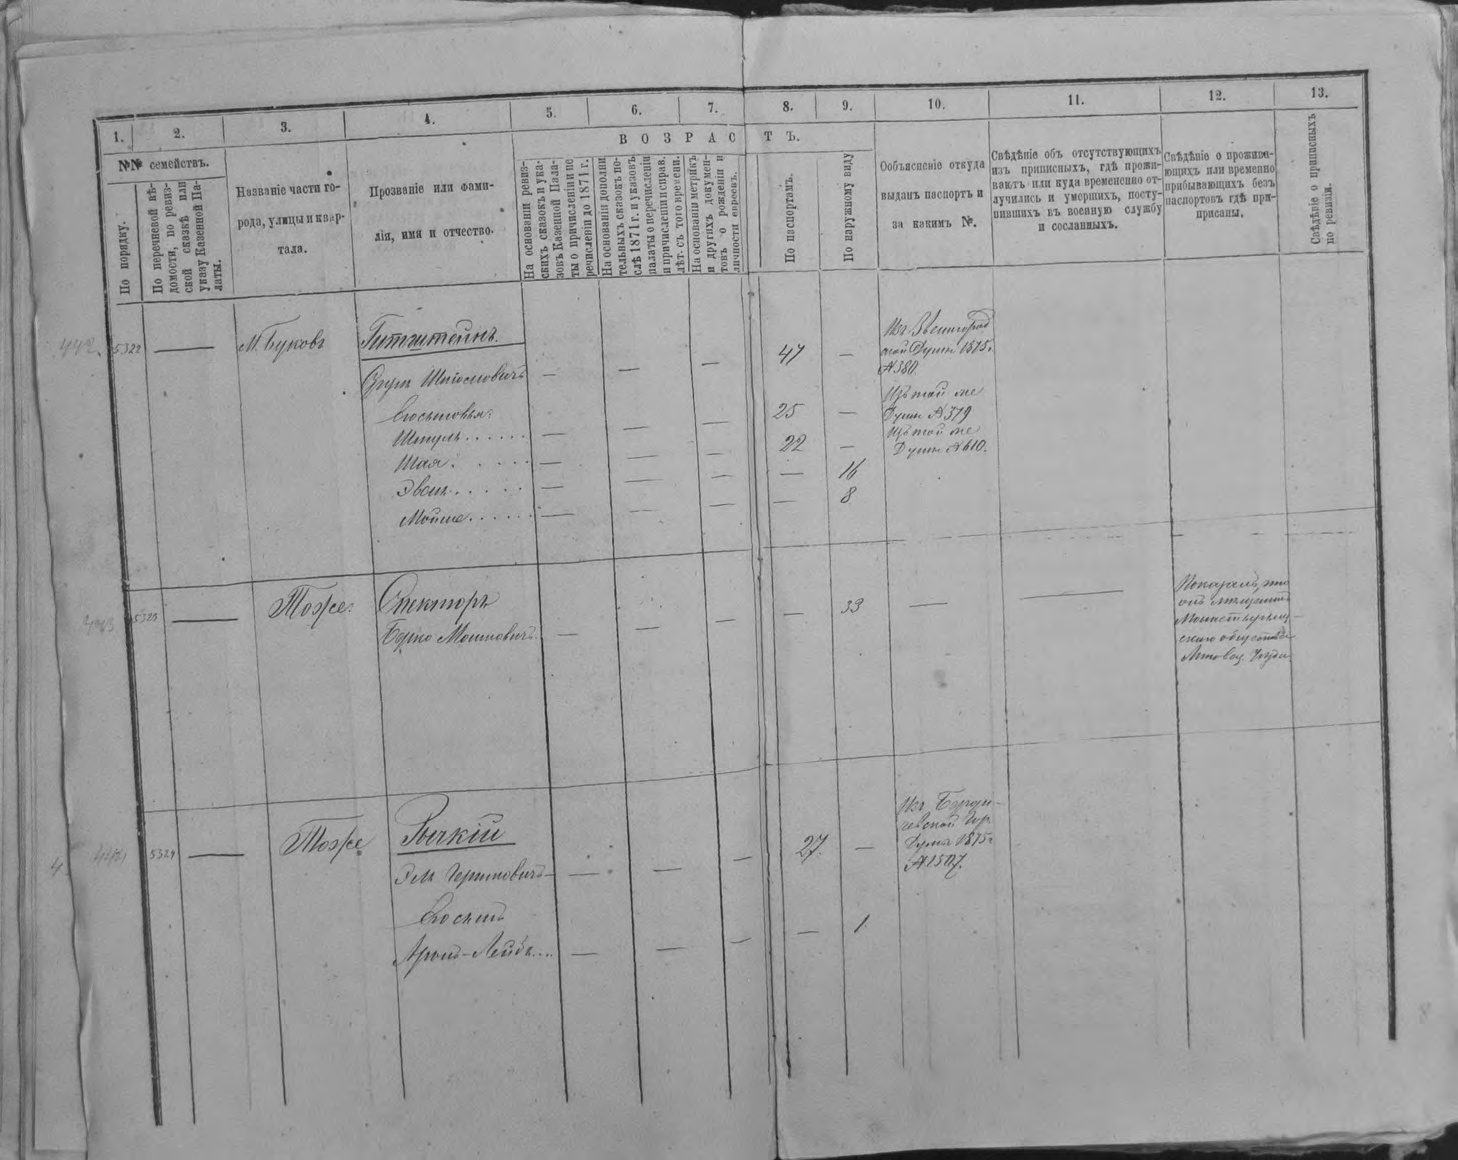 1. 2. 3. 4. 5. 6. 7. 8. 9. 10. 11. 12. 13.
№№ семействъ.
По порядку.
По перечневой вѣ-
домости, по ревиз-
ской сказкѣ или
указу Казенной Па-
латы.
Названіе части го-
рода, улицы и квар-
тала.
Прозваніе или фами-
лія, имя и отчество.
ВОЗРАСТЪ.
На основаніи ревиз-
скихъ сказокъ и ука-
зовъ Казенной Пала-
ты о причисленіи и пе
речисленіи до 1871 г.
На основаніи дополни
тельныхъ сказокъ по-
слѣ 1871 г. и указовъ
палаты о перечисленіи
и причисленіи и справ.
лѣт. съ того времени.
На основаніи метрикъ
и другихъ докумен-
товъ о рожденіи и
личности евреевъ.
По паспортамъ.
По наружному виду
Объясненіе откуда
выданъ паспортъ и
за какимъ №.
Свѣдѣніе объ отсутствующихъ
изъ приписныхъ, гдѣ прожи-
ваютъ или куда временно от-
лучились и умершихъ, посту-
пившихъ въ военную службу
и сосланныхъ.
Свѣдѣніе о прожива-
ющихъ или временно
прибывающихъ безъ
паспортовъ гдѣ при-
писаны.
Свѣдѣніе о приписныхъ
по ревизіи.
442. 5322 — М. Буковъ Гитштейнъ.
Изъ Звенигород
ской Думы 1875 г.
№ 380.
Срулъ — — — 47 —
Сыновья:
Изъ той же
Думы № 379
Шмуль — — — 25 —
Изъ той же
Думы № 610.
Шая — — — 22 —
— — — — 16
Мойше — — — — 8
443 5323 — Тоже. Спекторъ
Берко Мошковичъ — — — — 33 — —
Показалъ, что
онъ мѣщанинъ
скаго общества
444 5324 — Тоже Рычкій
Изъ Берди-
чевской Гор.
Думы 1875 г.
№ 1507.
— — — 27. —
Сынъ
Аронъ-Лейбъ — — — — 1
4